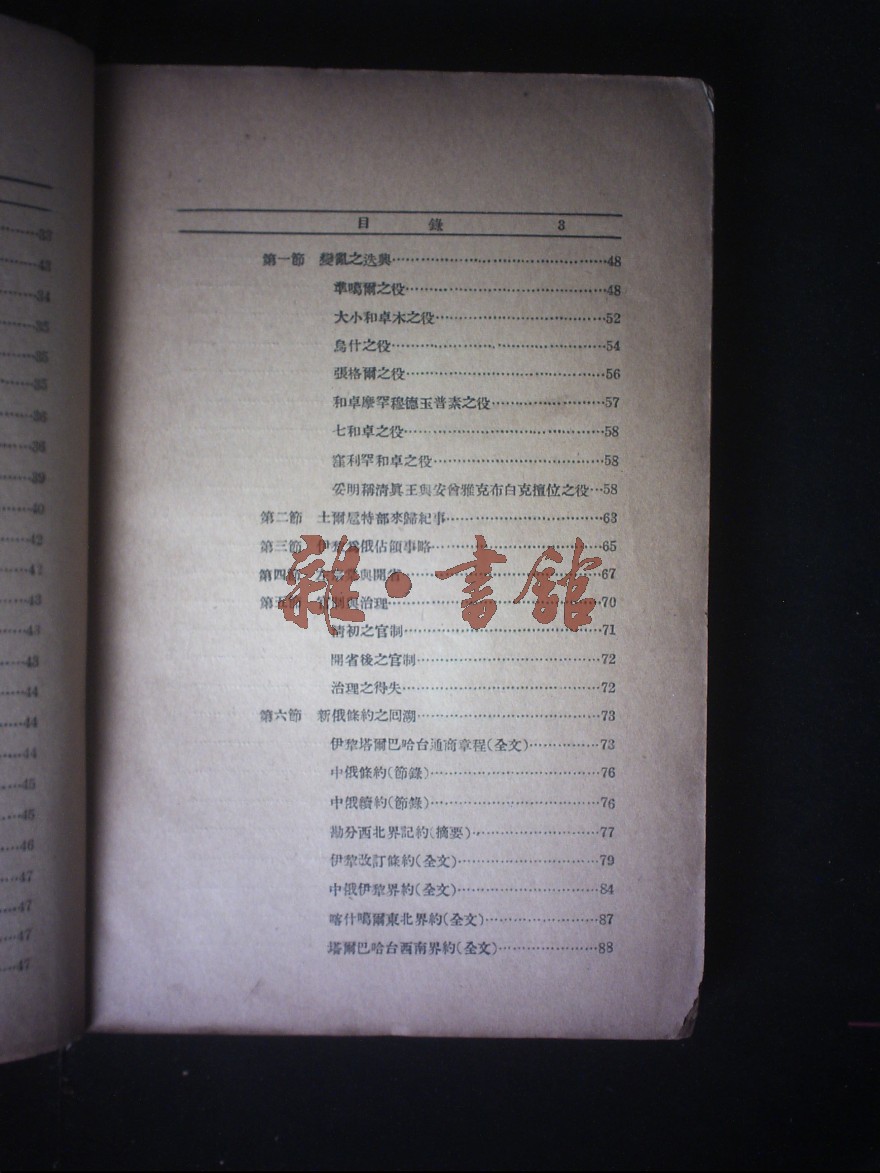 32
43
34
35
35
35
36
36
39
40
42
42
43
43
43
44
44
44
45
45
46
47
47
47
47
目錄 3
第一節 變亂之迭興……48
準噶爾之役……48
大小和卓木之役……52
烏什之役……54
張格爾之役……56
和卓摩罕穆德玉普素之役……57
七和卓之役……58
窪利罕和卓之役……58
妥明稱清眞王與安曾雅克布白克擅位之役…58
第二節 土爾扈特部來歸紀事……63
第三節 伊犂爲俄佔領事略……65
第四節 與開省……67
第五節 官制與治理……70
清初之官制……71
開省後之官制……72
治理之得失……72
第六節 新俄條約之回溯……73
伊犂塔爾巴哈台通商章程(全文)……73
中俄條約(節錄)……76
中俄續約(節錄)……76
勘分西北界記約(摘要)……77
伊犂改訂條約(全文)……79
中俄伊犂界約(全文)……84
喀什噶爾東北界約(全文)……87
塔爾巴哈台西南界約(全文)……88
雜·書館